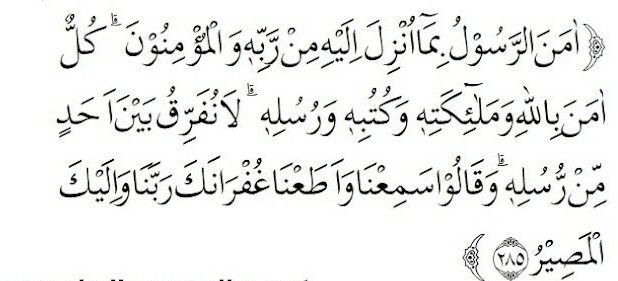 ﴿ اٰمَنَ الرَّسُوْلُ بِمَآ اُنْزِلَ اِلَيْهِ مِنْ رَّبِّهٖ وَالْمُؤْمِنُوْنَۗ كُلٌّ
اٰمَنَ بِاللّٰهِ وَمَلٰۤىِٕكَتِهٖ وَكُتُبِهٖ وَرُسُلِهٖۗ لَا نُفَرِّقُ بَيْنَ اَحَدٍ
مِّنْ رُّسُلِهٖۗ وَقَالُوْا سَمِعْنَا وَاَطَعْنَا غُفْرَانَكَ رَبَّنَا وَاِلَيْكَ
الْمَصِيْرُ ٢٨٥ ﴾